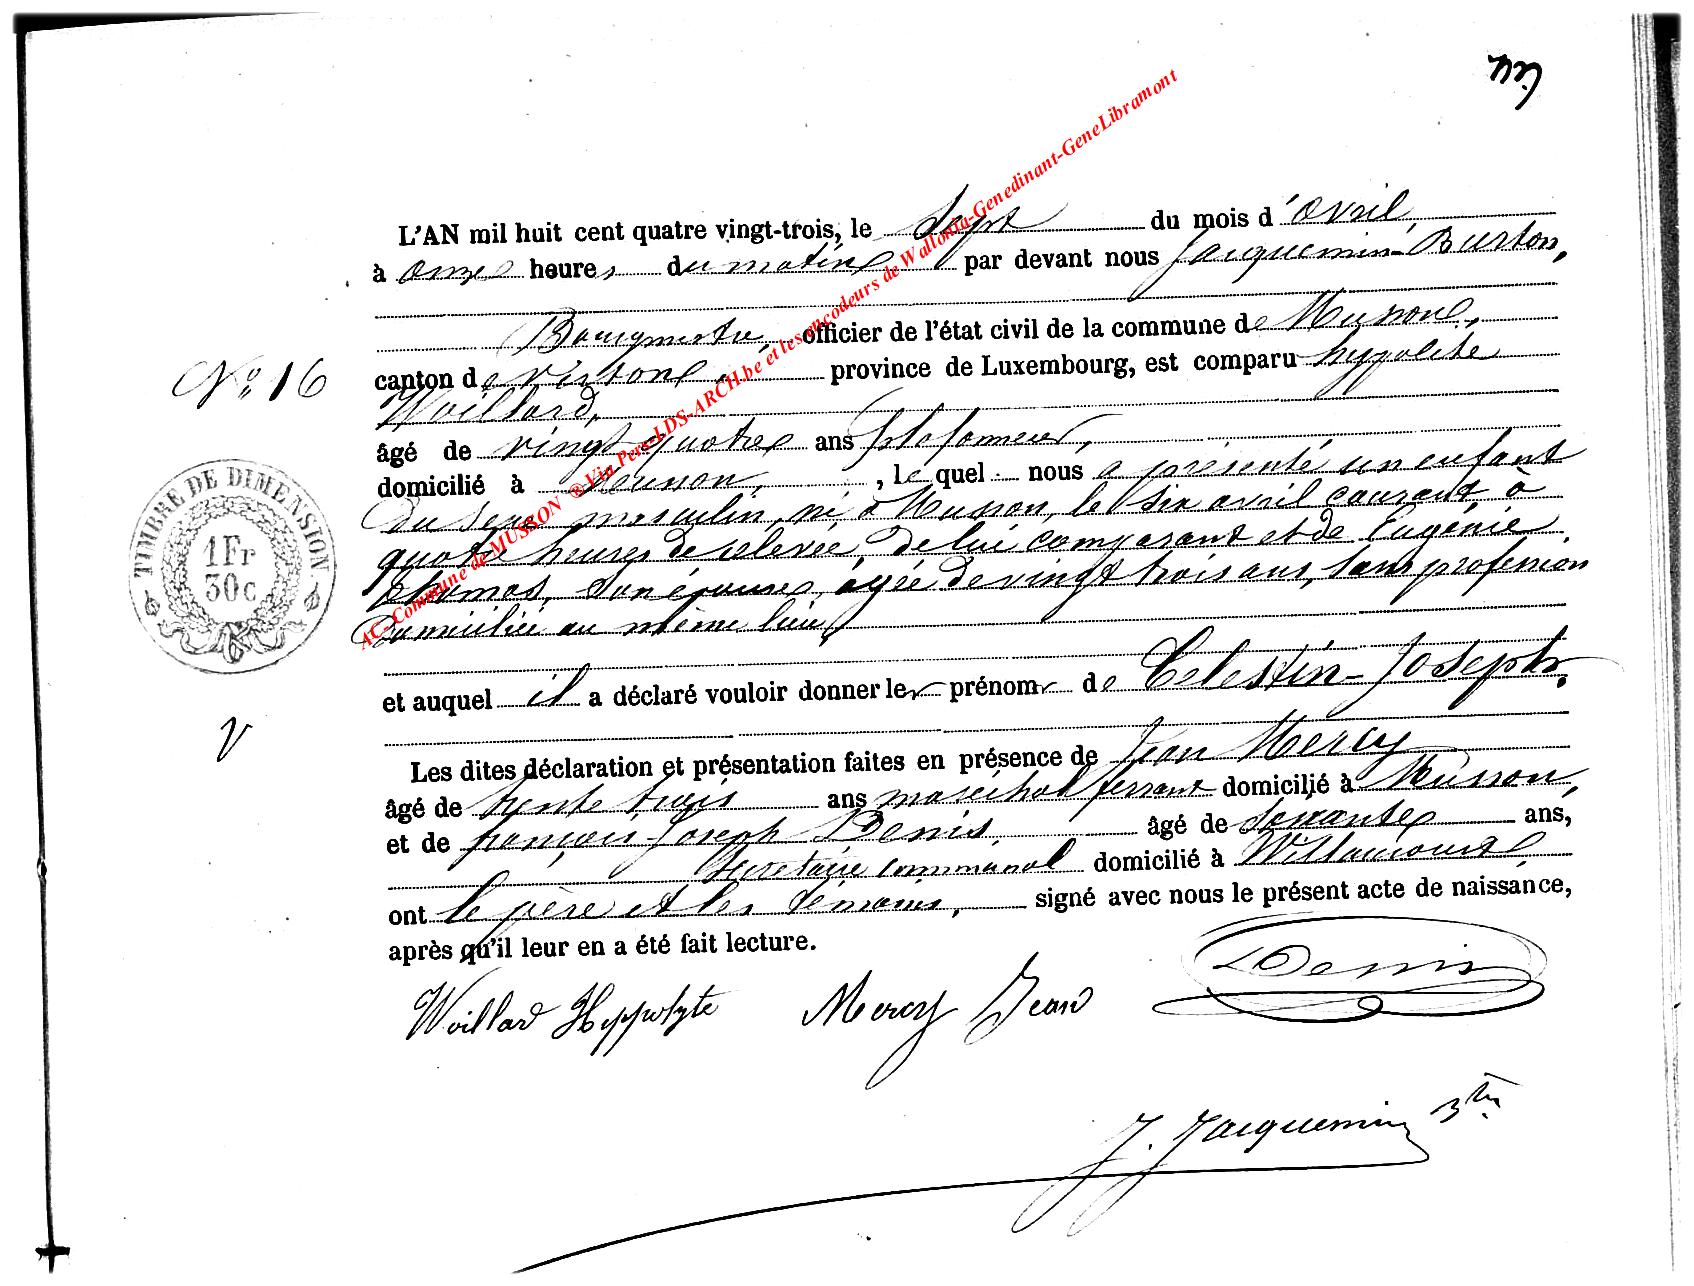 L'AN mil huit cent quatre vingt-trois, le Sept du mois d'avril,
à onze heures du matin par devant nous Jacquemin-Burton,
Bourgmestre, officier de l'état civil de la commune de Musson,
N° 16
canton de Virton, province de Luxembourg, est comparu hypolite
Woillard,
âgé de vingt quatre ans plafonneur,
domicilié à Musson, , lequel nous a présenté un enfant
du sexe masculin, né à Musson, le six avril courant, à
quatre heures de relevée, de lui comparant et de Eugénie
thomas, son épouse, agée de vingt trois ans, sans profession
Domiciliée au même lieu,
TIMBRE DE DIMENSION
1Fr
30c
et auquel il a déclaré vouloir donner les prénoms de Celestin-Joseph.
V
Les dites déclaration et présentation faites en présence de Jean Mercy
âgé de trente trois ans maréchal ferrant domicilié à Musson,
et de françois-Joseph Denis, âgé de soixante ans,
secretaire communal domicilié à Willancourt,
ont le père et les témoins, signé avec nous le présent acte de naissance,
après qu'il leur en a été fait lecture.
Woillard Hyppolyte Mercy Jean Denis
J. Jacquemin Btre
AC- Commune de MUSSON ® Via Pers-LDS-ARCH.be et les encodeurs de Wallonia-Genedinant-GeneLibramont